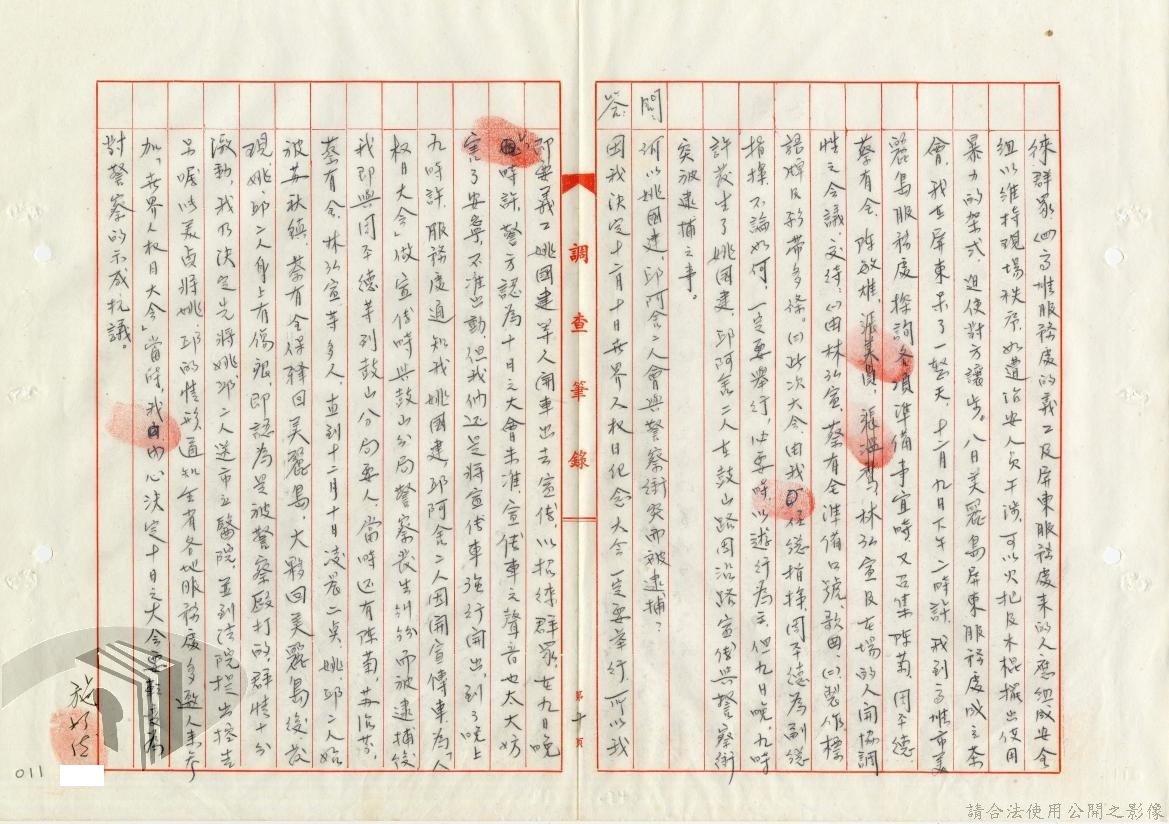 徠群眾(四)高雄服務處的義工及屏東服務處來的人應組成安全
組以維持現場秩序,如遭治安人員干涉,可以火把及木棍擺出使用
暴力的架式,迫使對方讓步。八日美麗島屏東服務處成立茶
會,我在屏東呆了一整天,十二月九日下午二時許,我到高雄市美
麗島服務處探詢各項準備事宜時,又召集陳菊、周平德、
蔡有全、陳敏雄、張美貞、張溫鷹、林弘宣及在場的人開協調
性之會議,交待:(一)由林弘宣、蔡有全準備口號、歌曲(二)製作標
語牌及彩帶多條。(三)此次大會由我任總指揮,周平德為副總
指揮,不論如何,一定要舉行,必要時以遊行為主,但九日晚,九時
許發生了姚國建、邱阿舍二人在鼓山路因沿路宣傳與警察衝
突被逮捕之事。
問:何以姚國建、邱阿舍二人會與警察衝突而被逮捕?
答:因我決定十二月十日世界人權日紀念大會一定要舉行,所以我
即要義工姚國建等人開車出去宣傳以招徠群眾,在九日晚
時許,警方認為十日之大會未准,宣傳車之聲音也太大妨
害了安寧,不准出動,但我們还是將宣傳車強行開出,到了晚上
九時許,服務處通知我姚國建、邱阿舍二人因開宣傳車為「人
權日大會」做宣傳時與鼓山分局警察發生糾紛而被逮捕後
我即與周平德等到鼓山分局要人,當時还有陳菊、蘇治芬、
蔡有全、林弘宣等多人,直到十二月十日凌晨二點,姚、邱二人始
被蘇秋鎮、蔡有全保釋回美麗島,大夥回美麗島後發
現姚、邱二人身上有傷痕,即認為是被警察毆打的,群情十分
激動,我乃決定先將姚、邱二人送市立醫院,並到法院提出控告
另囑以美貞將姚、邱的情形通知全省各地服務處多邀人來參
加「世界人權日大會」當時,我內心決定十日之大會要轉變為
對警察的示威抗議。
調查筆錄
第十頁
施明德
011
請合法使用公開之影像